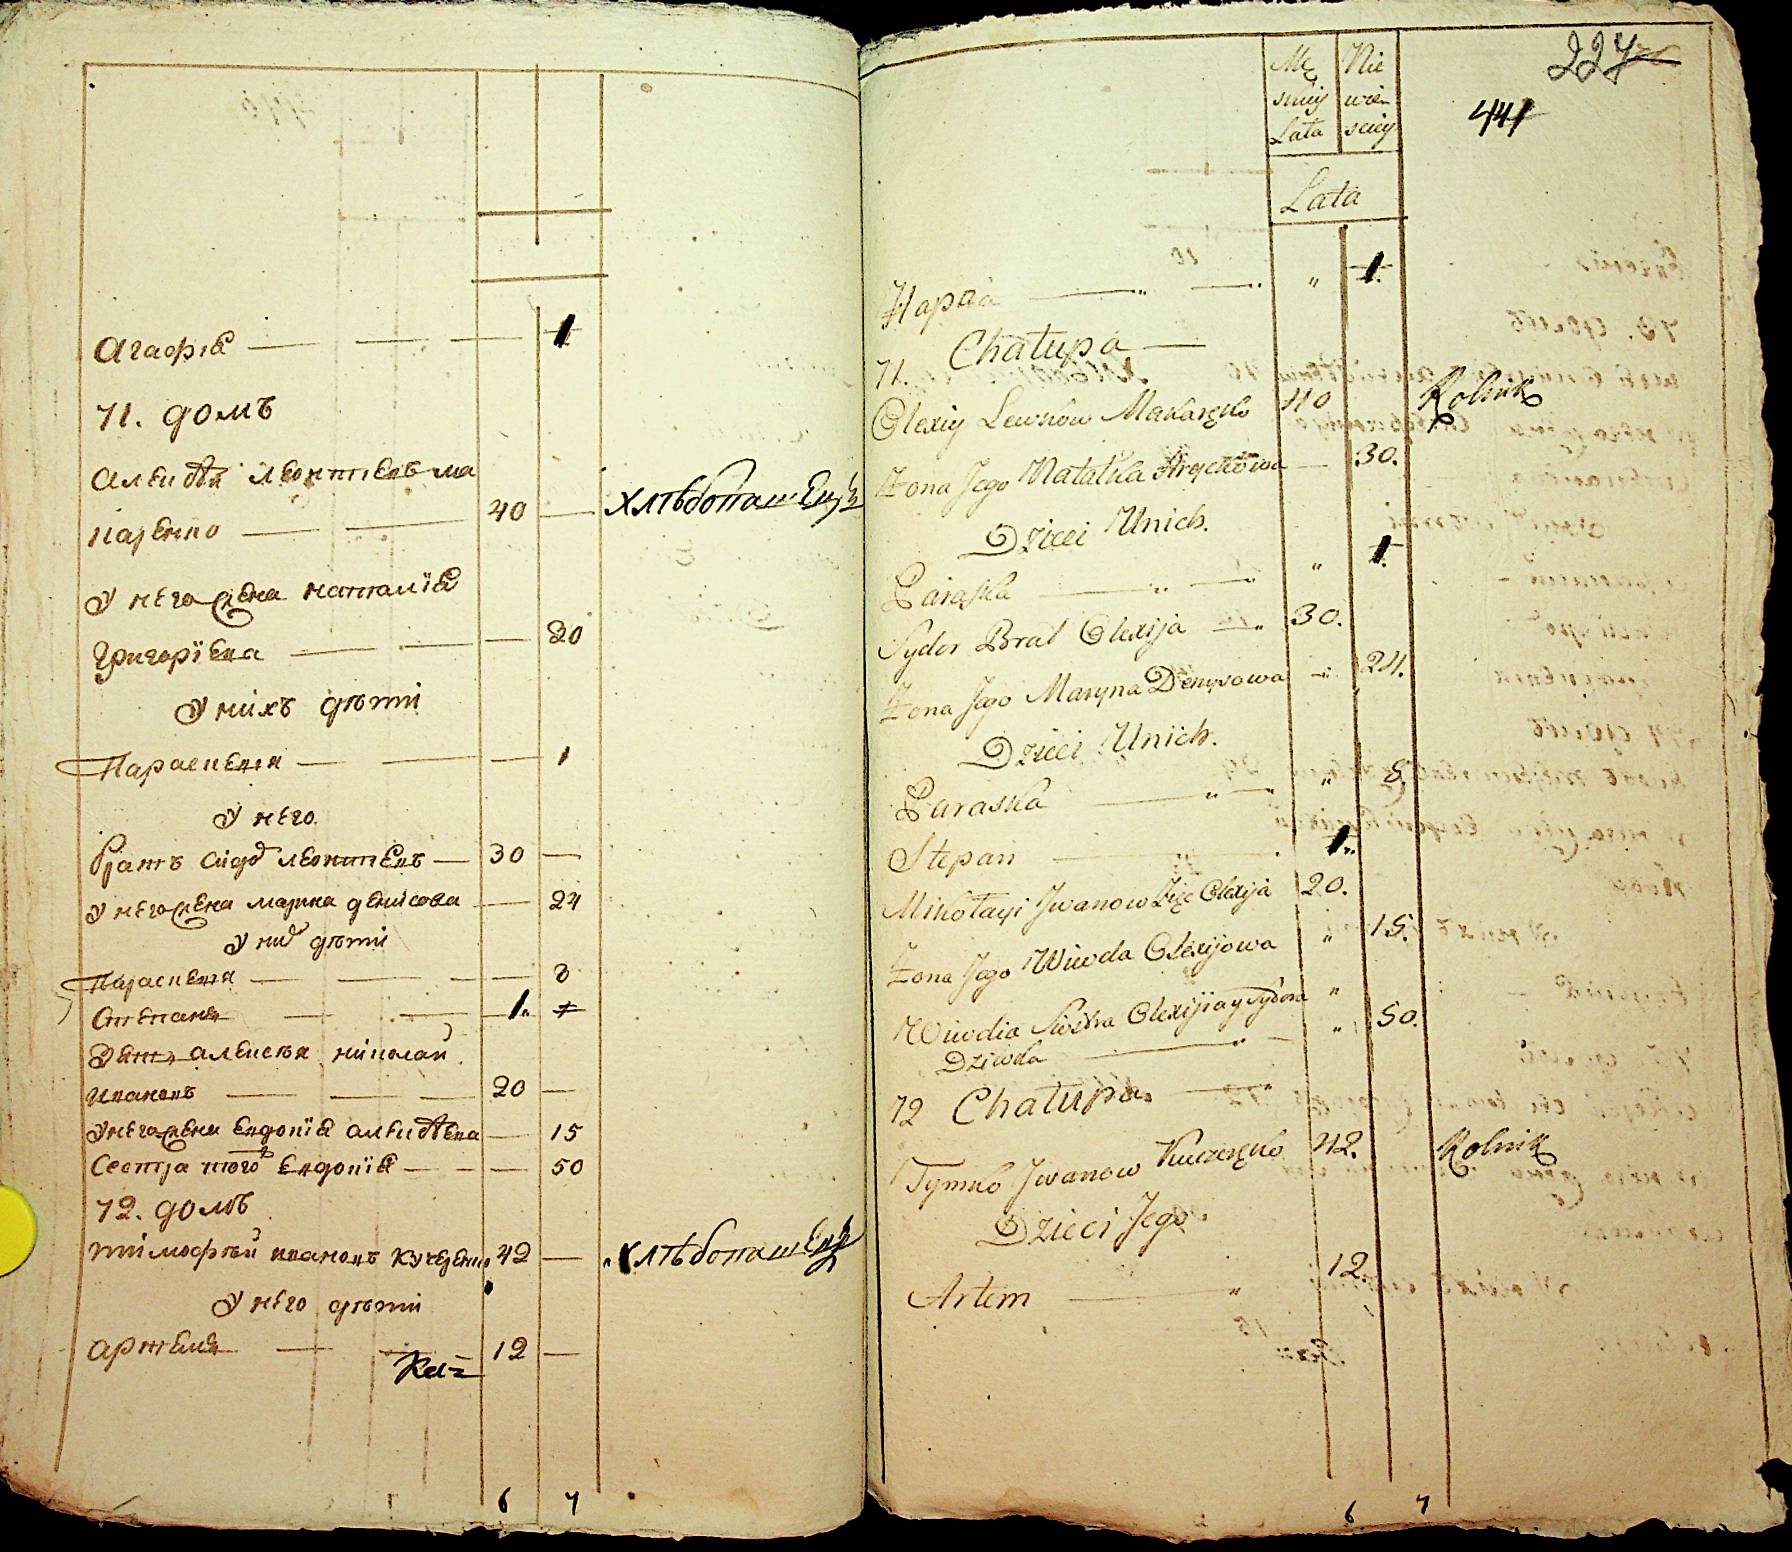 Агафія — — — 1
71. домъ
Алексѣй Леонтіевъ ма
каренко — — 40 — хлѣбопашецъ
У него жена наталія
Григоріева — — — 30
У нихъ дѣти
Параскевія — — — 1
У него
братъ Сидоръ леонтіевъ — 30 —
У него жена марина денисова — 24
У нихъ дѣти
Параскевія — — — 8
Степанъ — — 1. —
Зять алексѣя николай
ивановъ — — — 20 —
У него жена Евдокія алексѣева — 15
Сестра того Евдокія — — — 50
72. домъ
тимофѣй ивановъ кучеренко 42 — хлѣбопашецъ
У него дѣти
артемій — — 12 —
6 7
227
441
Mę Nie
skiey wie
Lata sciey
Lata
Hapka — " — " 1.
Chałupa —
71.
Olexiy Lewkow Makaręko 40 Rolnik
Żona Jego Natalka Hryckowa — 30.
Dzieci Unich.
Paraska — " — " 1.
Sydor Brat Olexija — " 30.
Żona Jego Maryna Denysowa — " 24.
Dzieci Unich.
Paraska — " — " 8.
Stepan — 1.
Mikołayi Jwanow Zięć Olexija 20.
Żona Jego Wiwda Olexijowa " 15.
Wiwdia Siostra Olexija y Sydora "
Dziwka — " — " 50.
72 Chałupa. — "
Tymko Jwanow Kuczeręko 42. Rolnik
Dzieci Jego.
Artem — " 12.
6 7